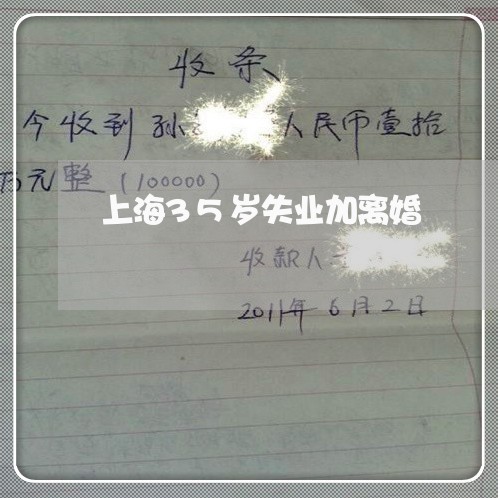 收条
今收到孙 人民币壹拾
万元整(100000)
上海35岁失业加离婚
收款人
2011年6月2日